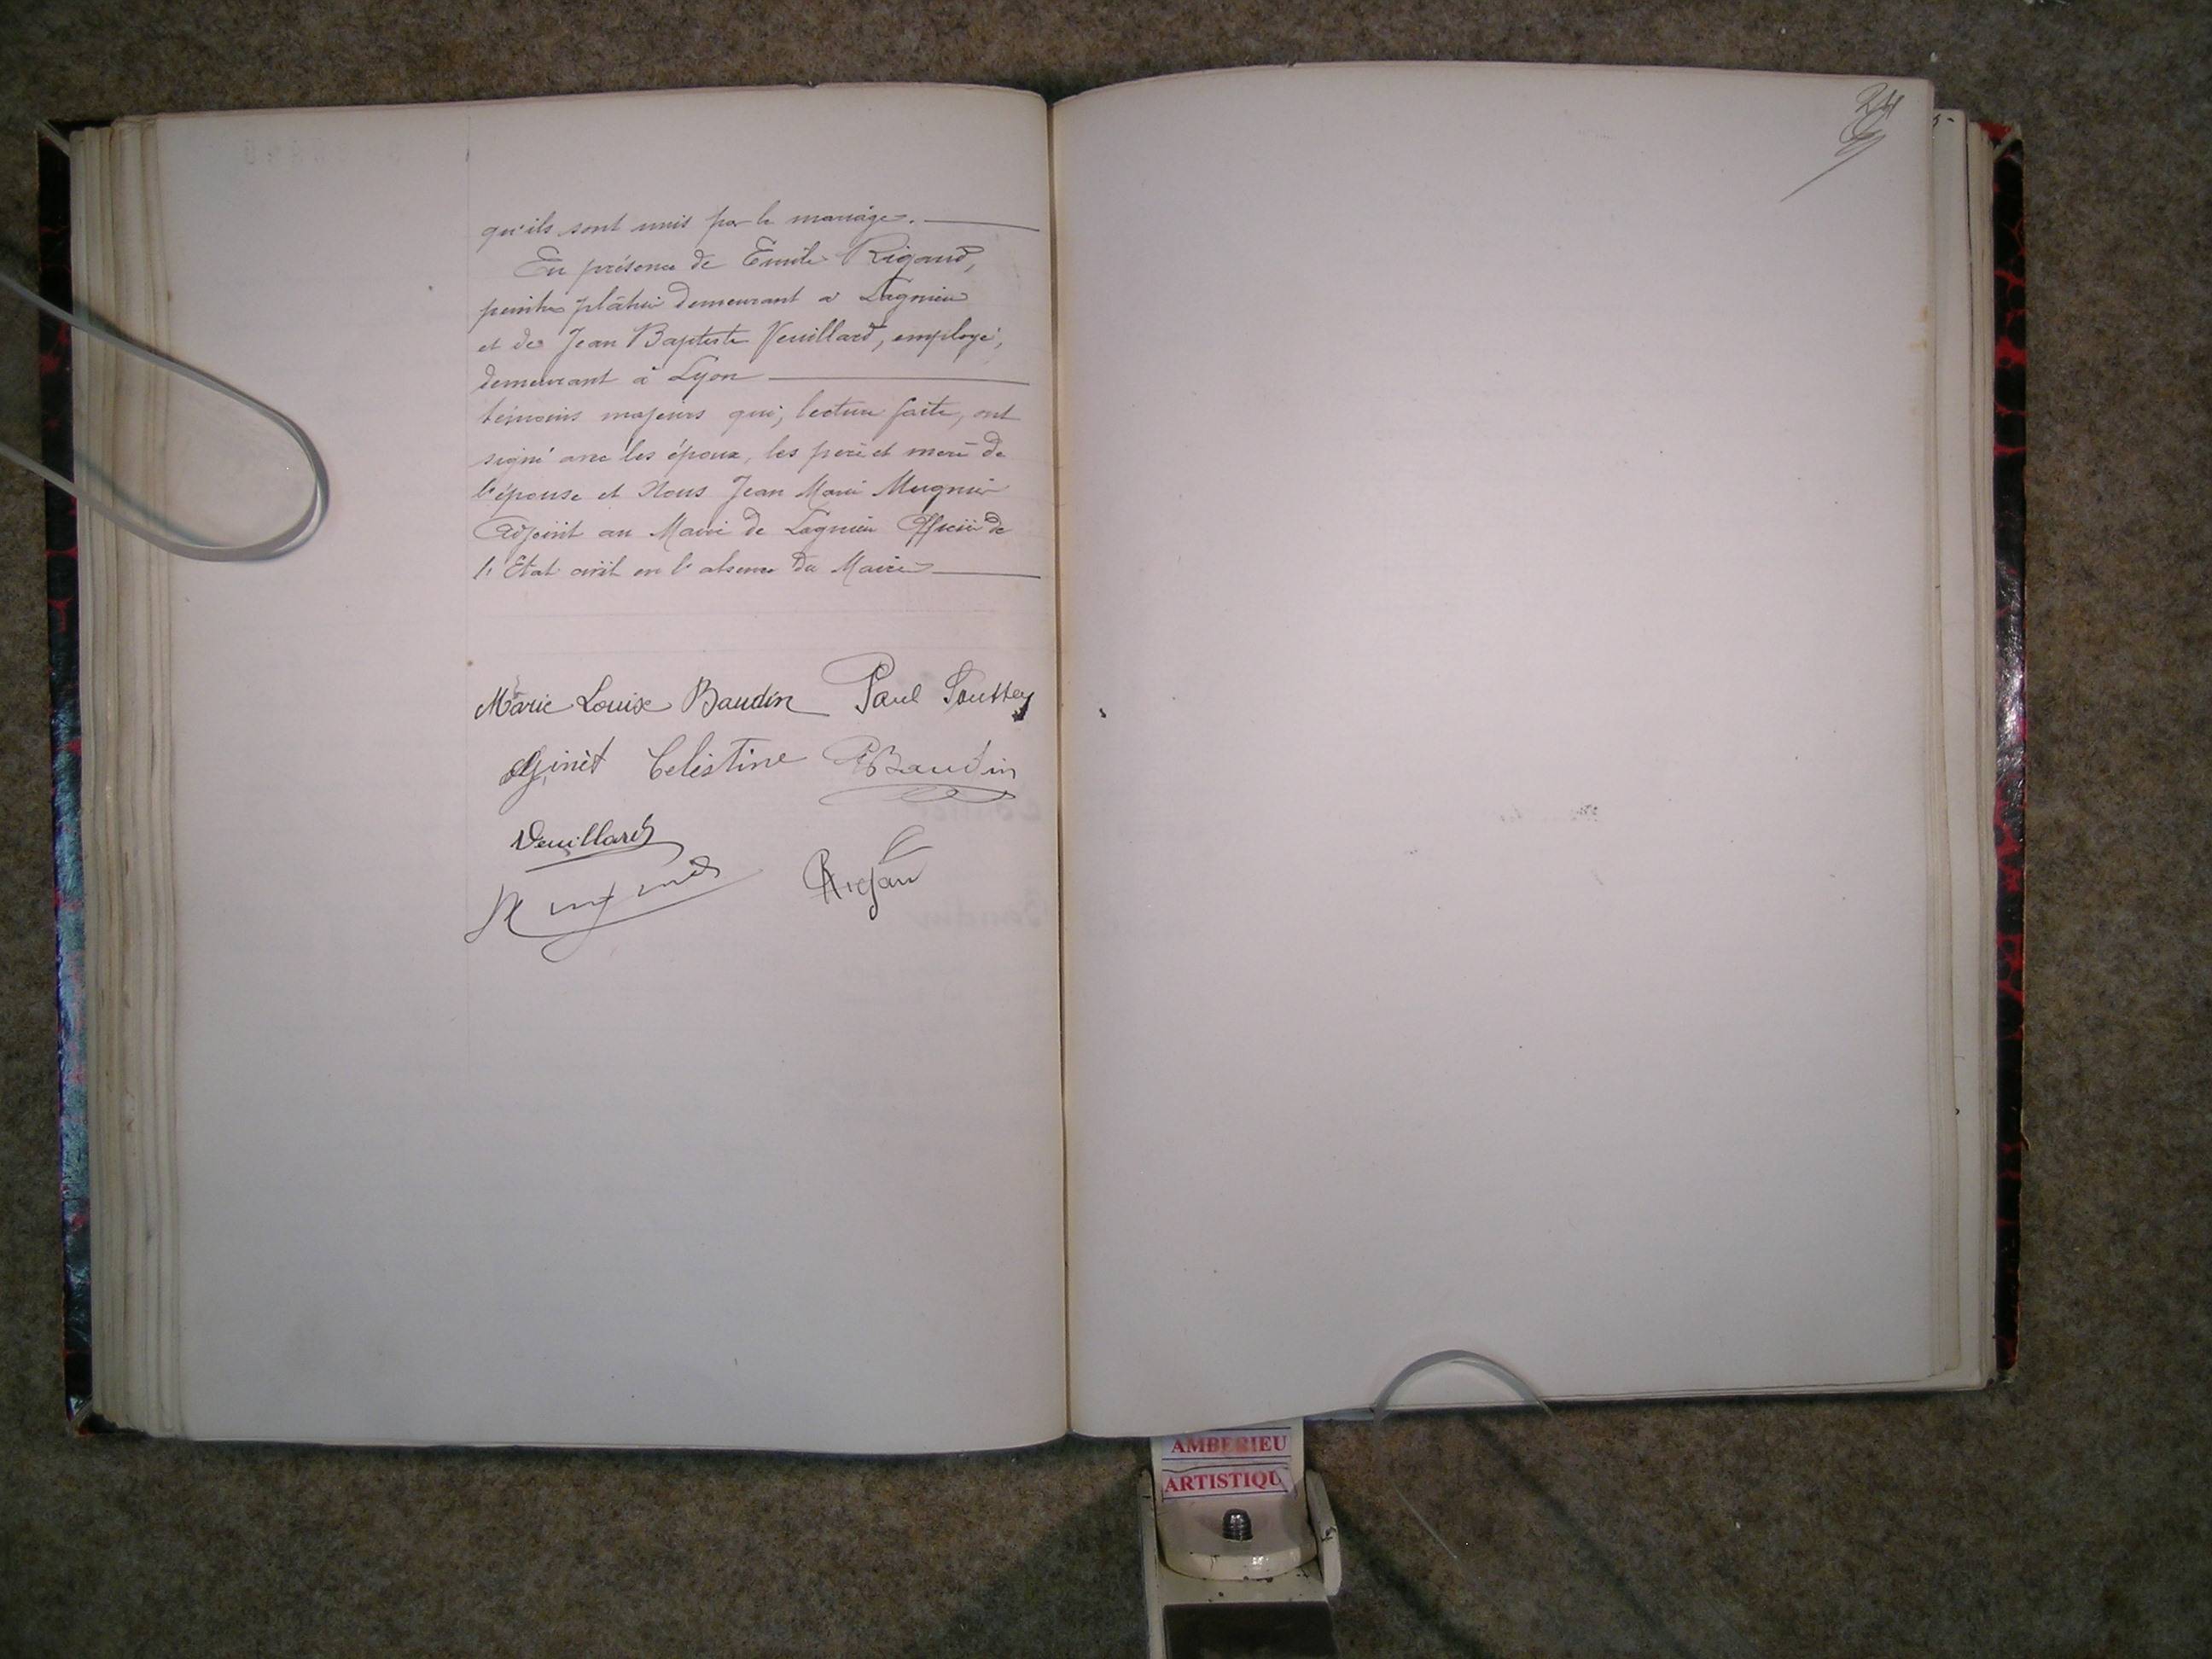 qu'ils sont unis par le mariage.
En présence de Emile Rigaud,
peintre plâtrier demeurant à Lagnieu
et de Jean Baptiste Veuillard, employé,
demeurant à Lyon
témoins majeurs qui, lecture faite, ont
signé avec les époux, les père et mère de
l'épouse et Nous Jean Marie Mugnier
Adjoint au Maire de Lagnieu Officier de
l'Etat civil en l'absence du Maire
Marie Louise Baudin Paul
Ginèt Celéstine Baudin
Veuillard
24
AMBERIEU
ARTISTIQU